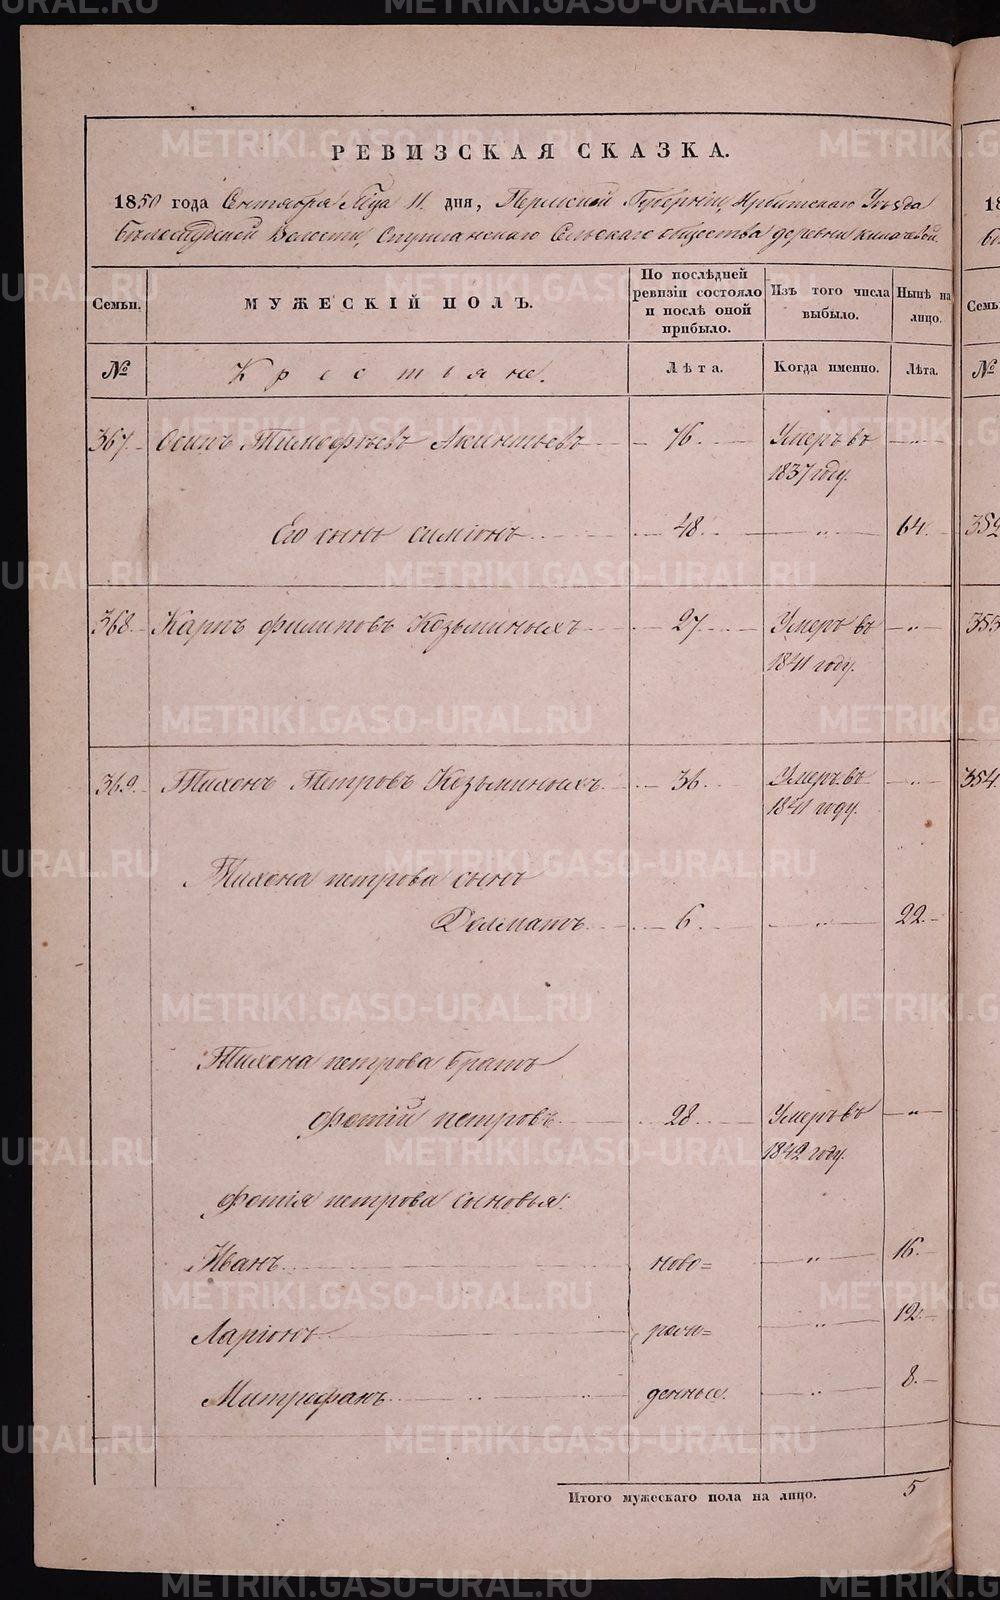 METRIKI.GASO-URAL.RU
РЕВИЗСКАЯ СКАЗКА.
1850 года Сентября М-ца 11 дня, Пермской Губернии, Ирбитскаго Уѣзда
Белослудской Волости, Сельскаго общества деревни
Семьи.
МУЖЕСКІЙ ПОЛЪ.
По послѣдней ревизіи состояло и послѣ оной прибыло.
Изъ того числа выбыло.
Нынѣ на лицо.
№
Крестьяне.
Лѣта.
Когда именно.
Лѣта.
367. Осипъ Тимофѣевъ Акинтьевъ 76. Умеръ въ 1837 году. "
Его сынъ Симіонъ 48. " 64.
368. Карпъ Филиповъ Козьминыхъ 27. Умеръ въ 1841 году. "
369. Тихонъ Петровъ Козьминыхъ 36. Умеръ въ 1841 году. "
Тихона петрова сынъ
Долматъ 6. " 22.
Тихона петрова братъ
Фотій петровъ 28 Умеръ въ 1842 году. "
Фотія петрова сыновья:
Иванъ ново= " 16.
Ларіонъ рож= " 12.
Митрофанъ денные. " 8.
Итого мужескаго пола на лицо. 5
18
Семь
№
353
354.